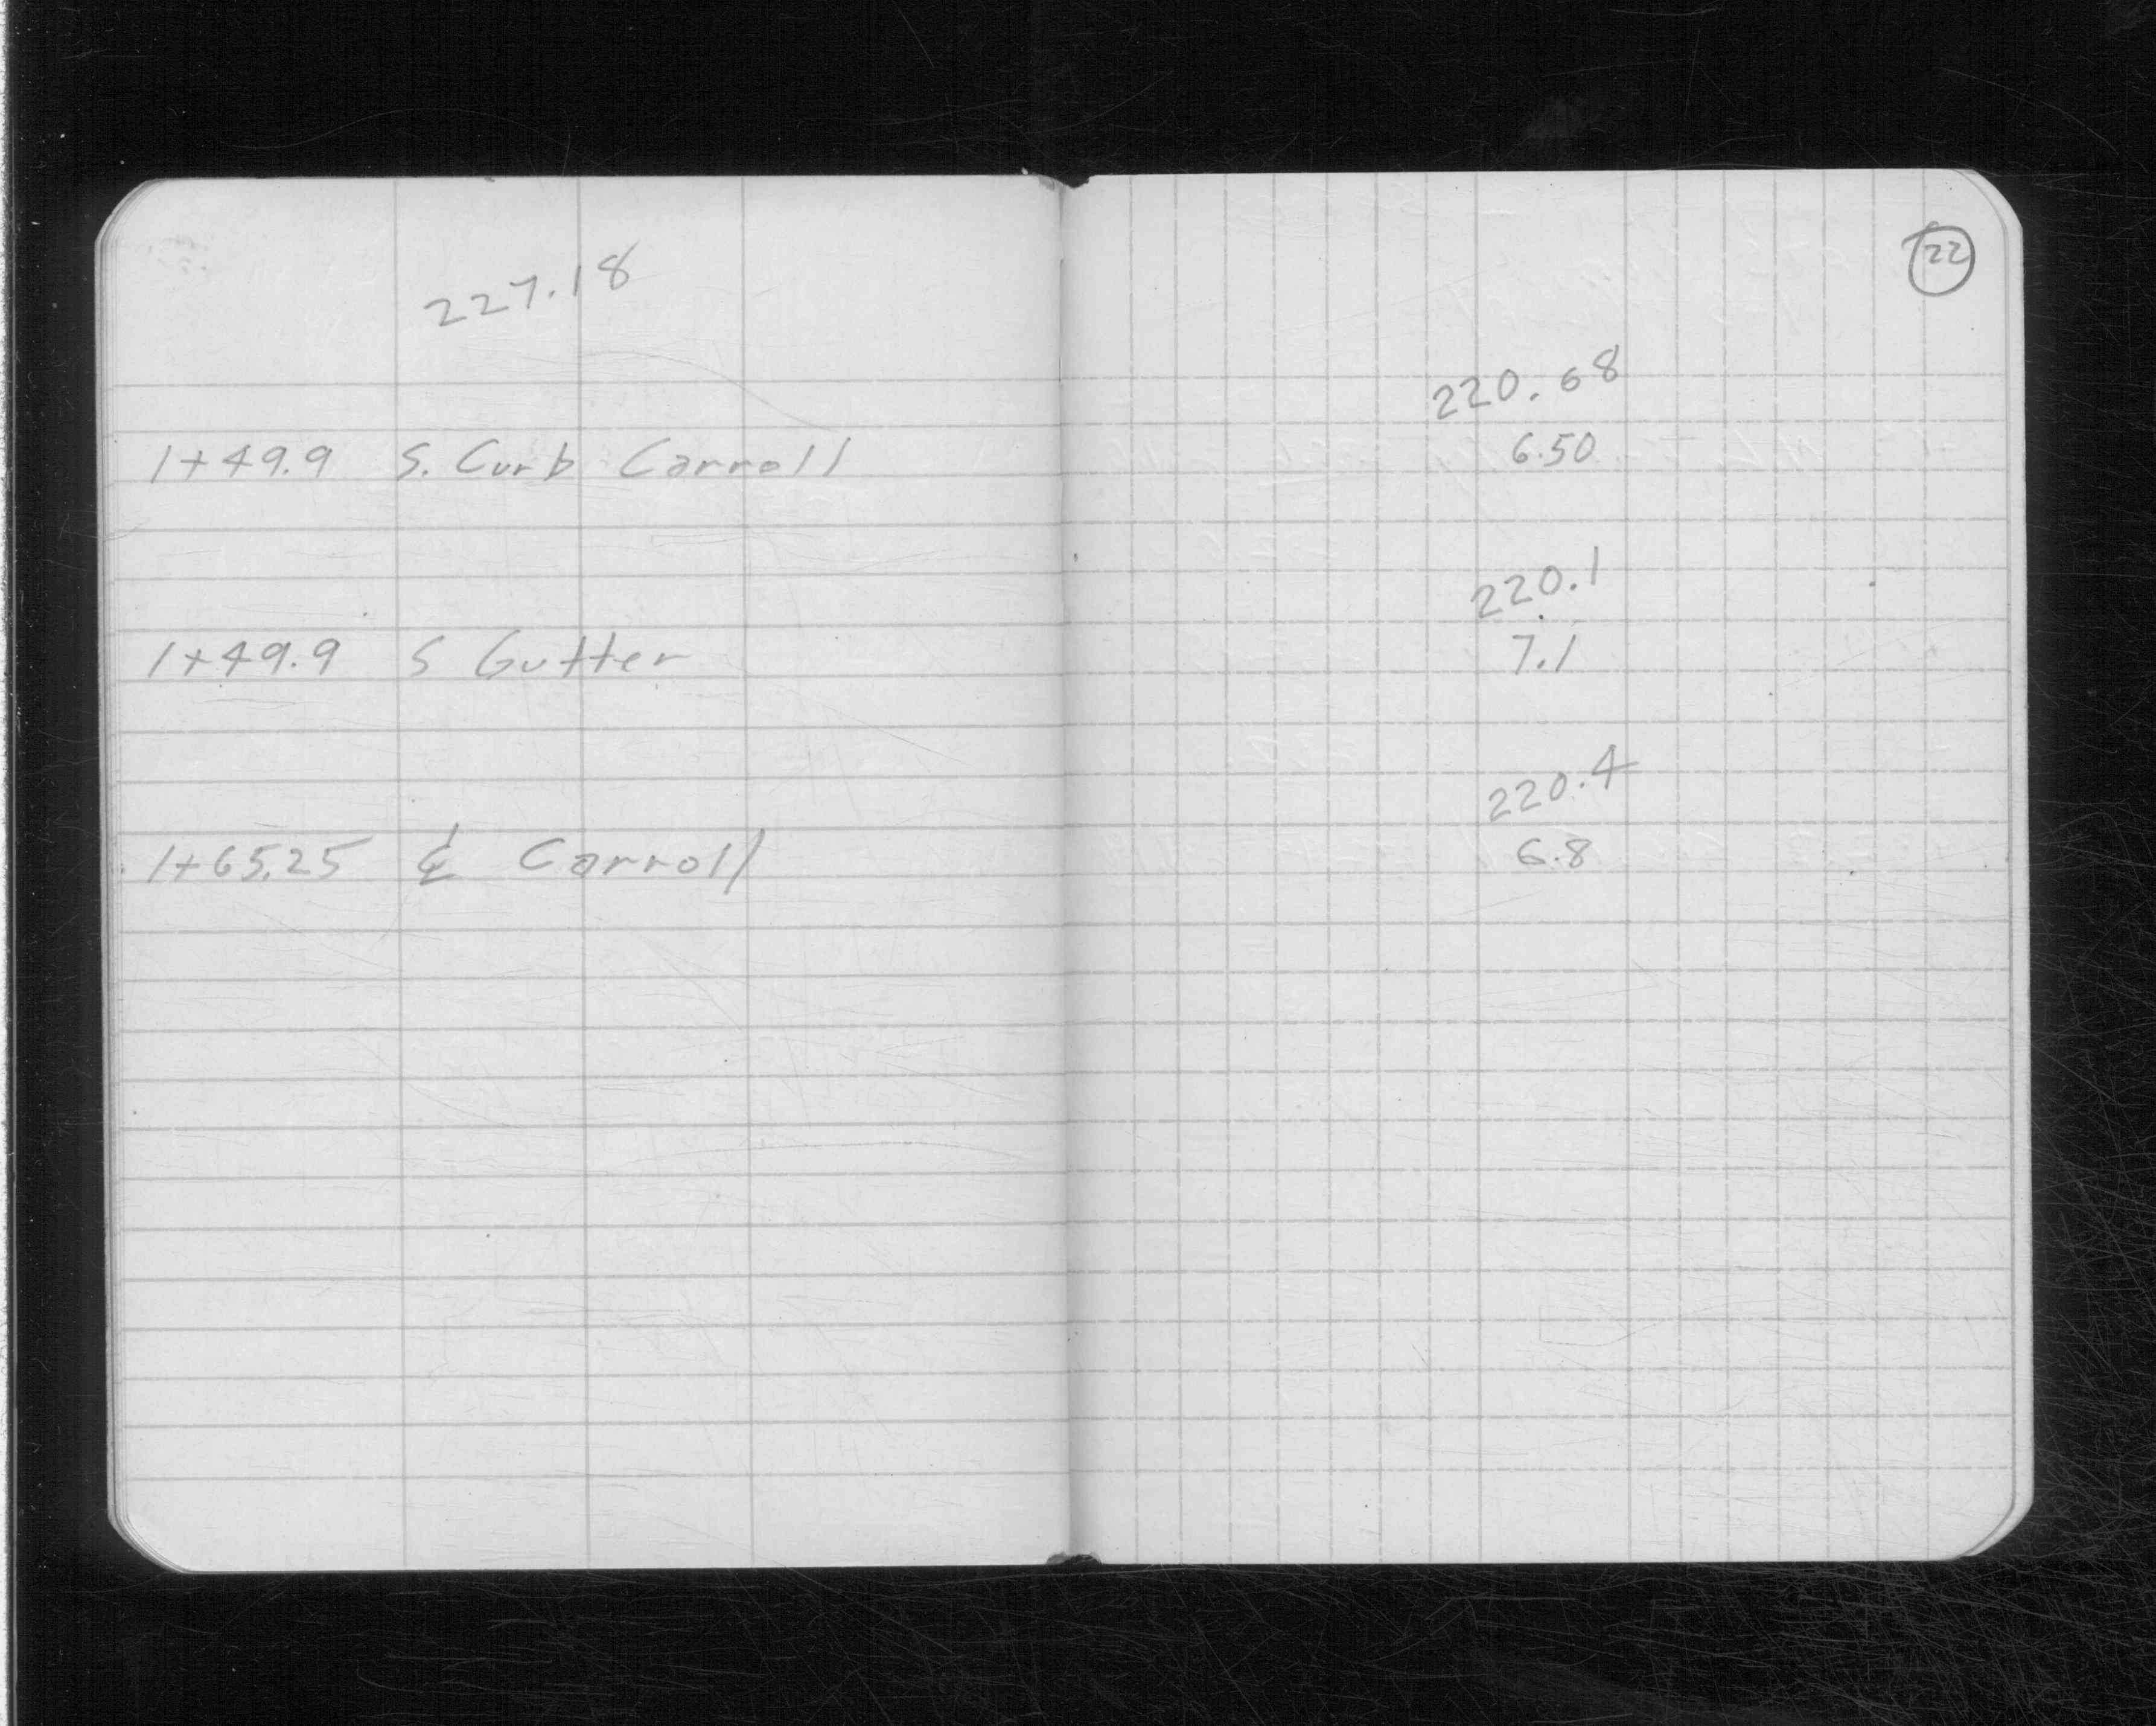 227.18
22
220.68
1+49.9 S. Curb Carroll 6.50
220.1
1+49.9 S Gutter 7.1
220.4
1+65.25 ℄ Carroll 6.8